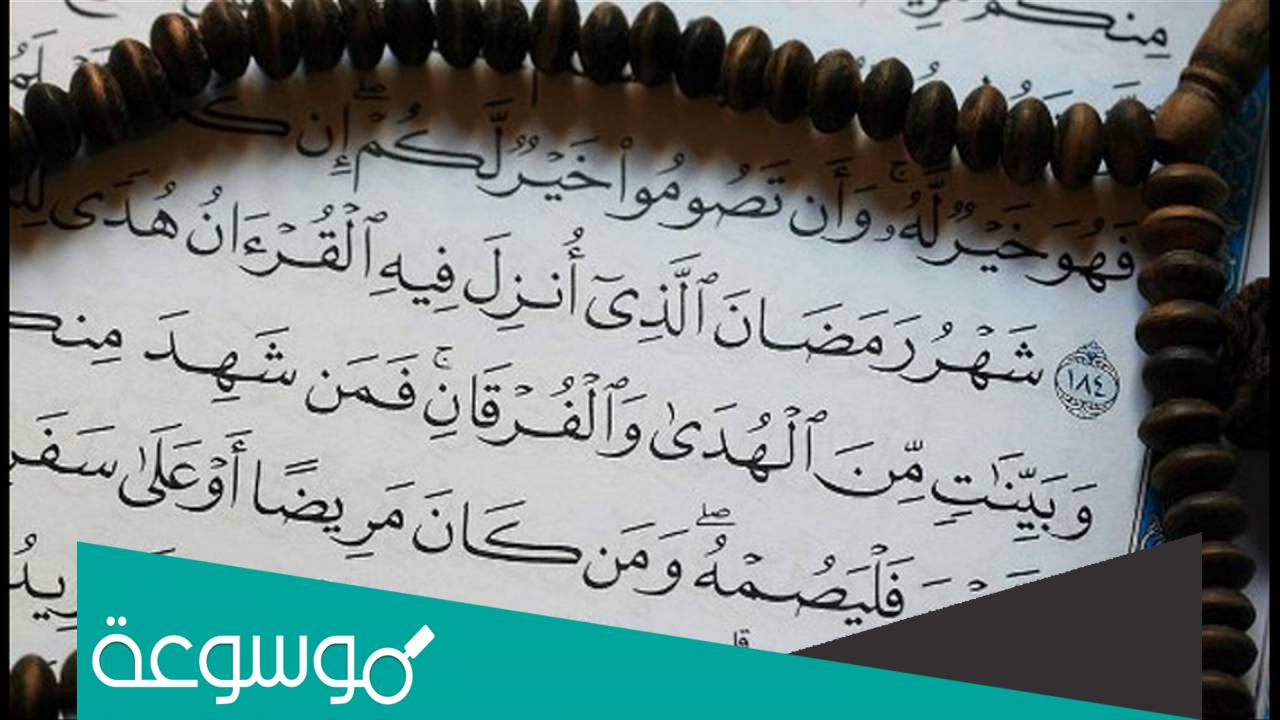 مِنكُم
فَهُوَ خَيْرٌ لَّهُۥ ۚ وَأَن تَصُومُوا۟ خَيْرٌ لَّكُمْ ۖ إِن
١٨٤ شَهْرُ رَمَضَانَ ٱلَّذِىٓ أُنزِلَ فِيهِ ٱلْقُرْءَانُ هُدًى
وَبَيِّنَـٰتٍ مِّنَ ٱلْهُدَىٰ وَٱلْفُرْقَانِ ۚ فَمَن شَهِدَ
فَلْيَصُمْهُ ۖ وَمَن كَانَ مَرِيضًا أَوْ عَلَىٰ
موسوعة